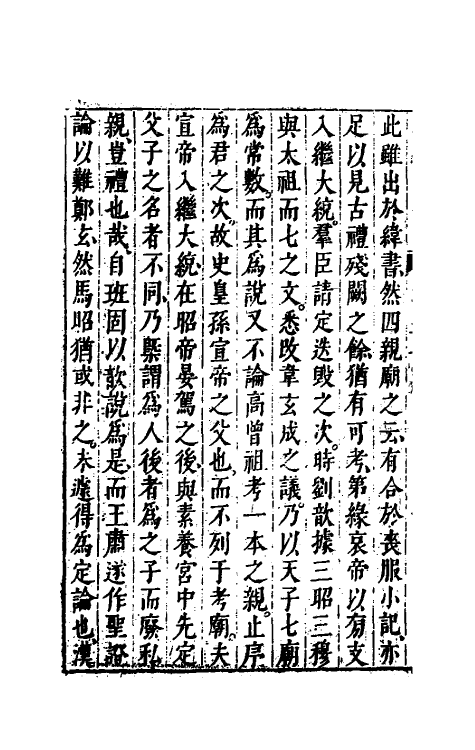 此雖出於緯書、然四親廟之云、有合於喪服小記、亦
足以見古禮殘闕之餘、猶有可考、第緣哀帝以旁支
入繼大統、羣臣請定迭毀之次、時劉歆據三昭三穆
與太祖而七之文、悉改韋玄成之議、乃以天子七廟
爲常數、而其爲說又不論高曾祖考一本之親、止序
爲君之次、故史皇孫宣帝之父也、而不列于考廟、夫
宣帝入繼大統、在昭帝晏駕之後、與素養宮中先定
父子之名者不同、乃槩謂爲人後者爲之子而廢私
親、豈禮也哉、自班固以歆說爲是、而王肅遂作聖證
論以難鄭玄、然馬昭猶或非之、未遽得爲定論也、漢